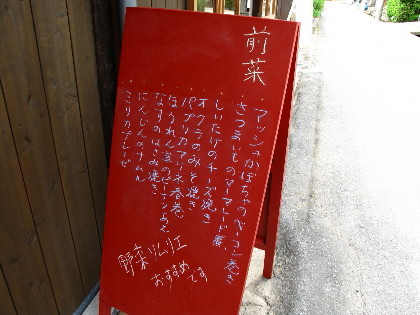 前菜
アッシュかぼちゃのベーコン巻き
さつまいものマーマレード煮
しいたけのチーズ焼き
オクラのみそ焼き
パプリカの
ほうれん草のピーナッツあえ
なすのはさみ焼き
にんじんのナムル
野菜ソムリエ
おすすめ
です